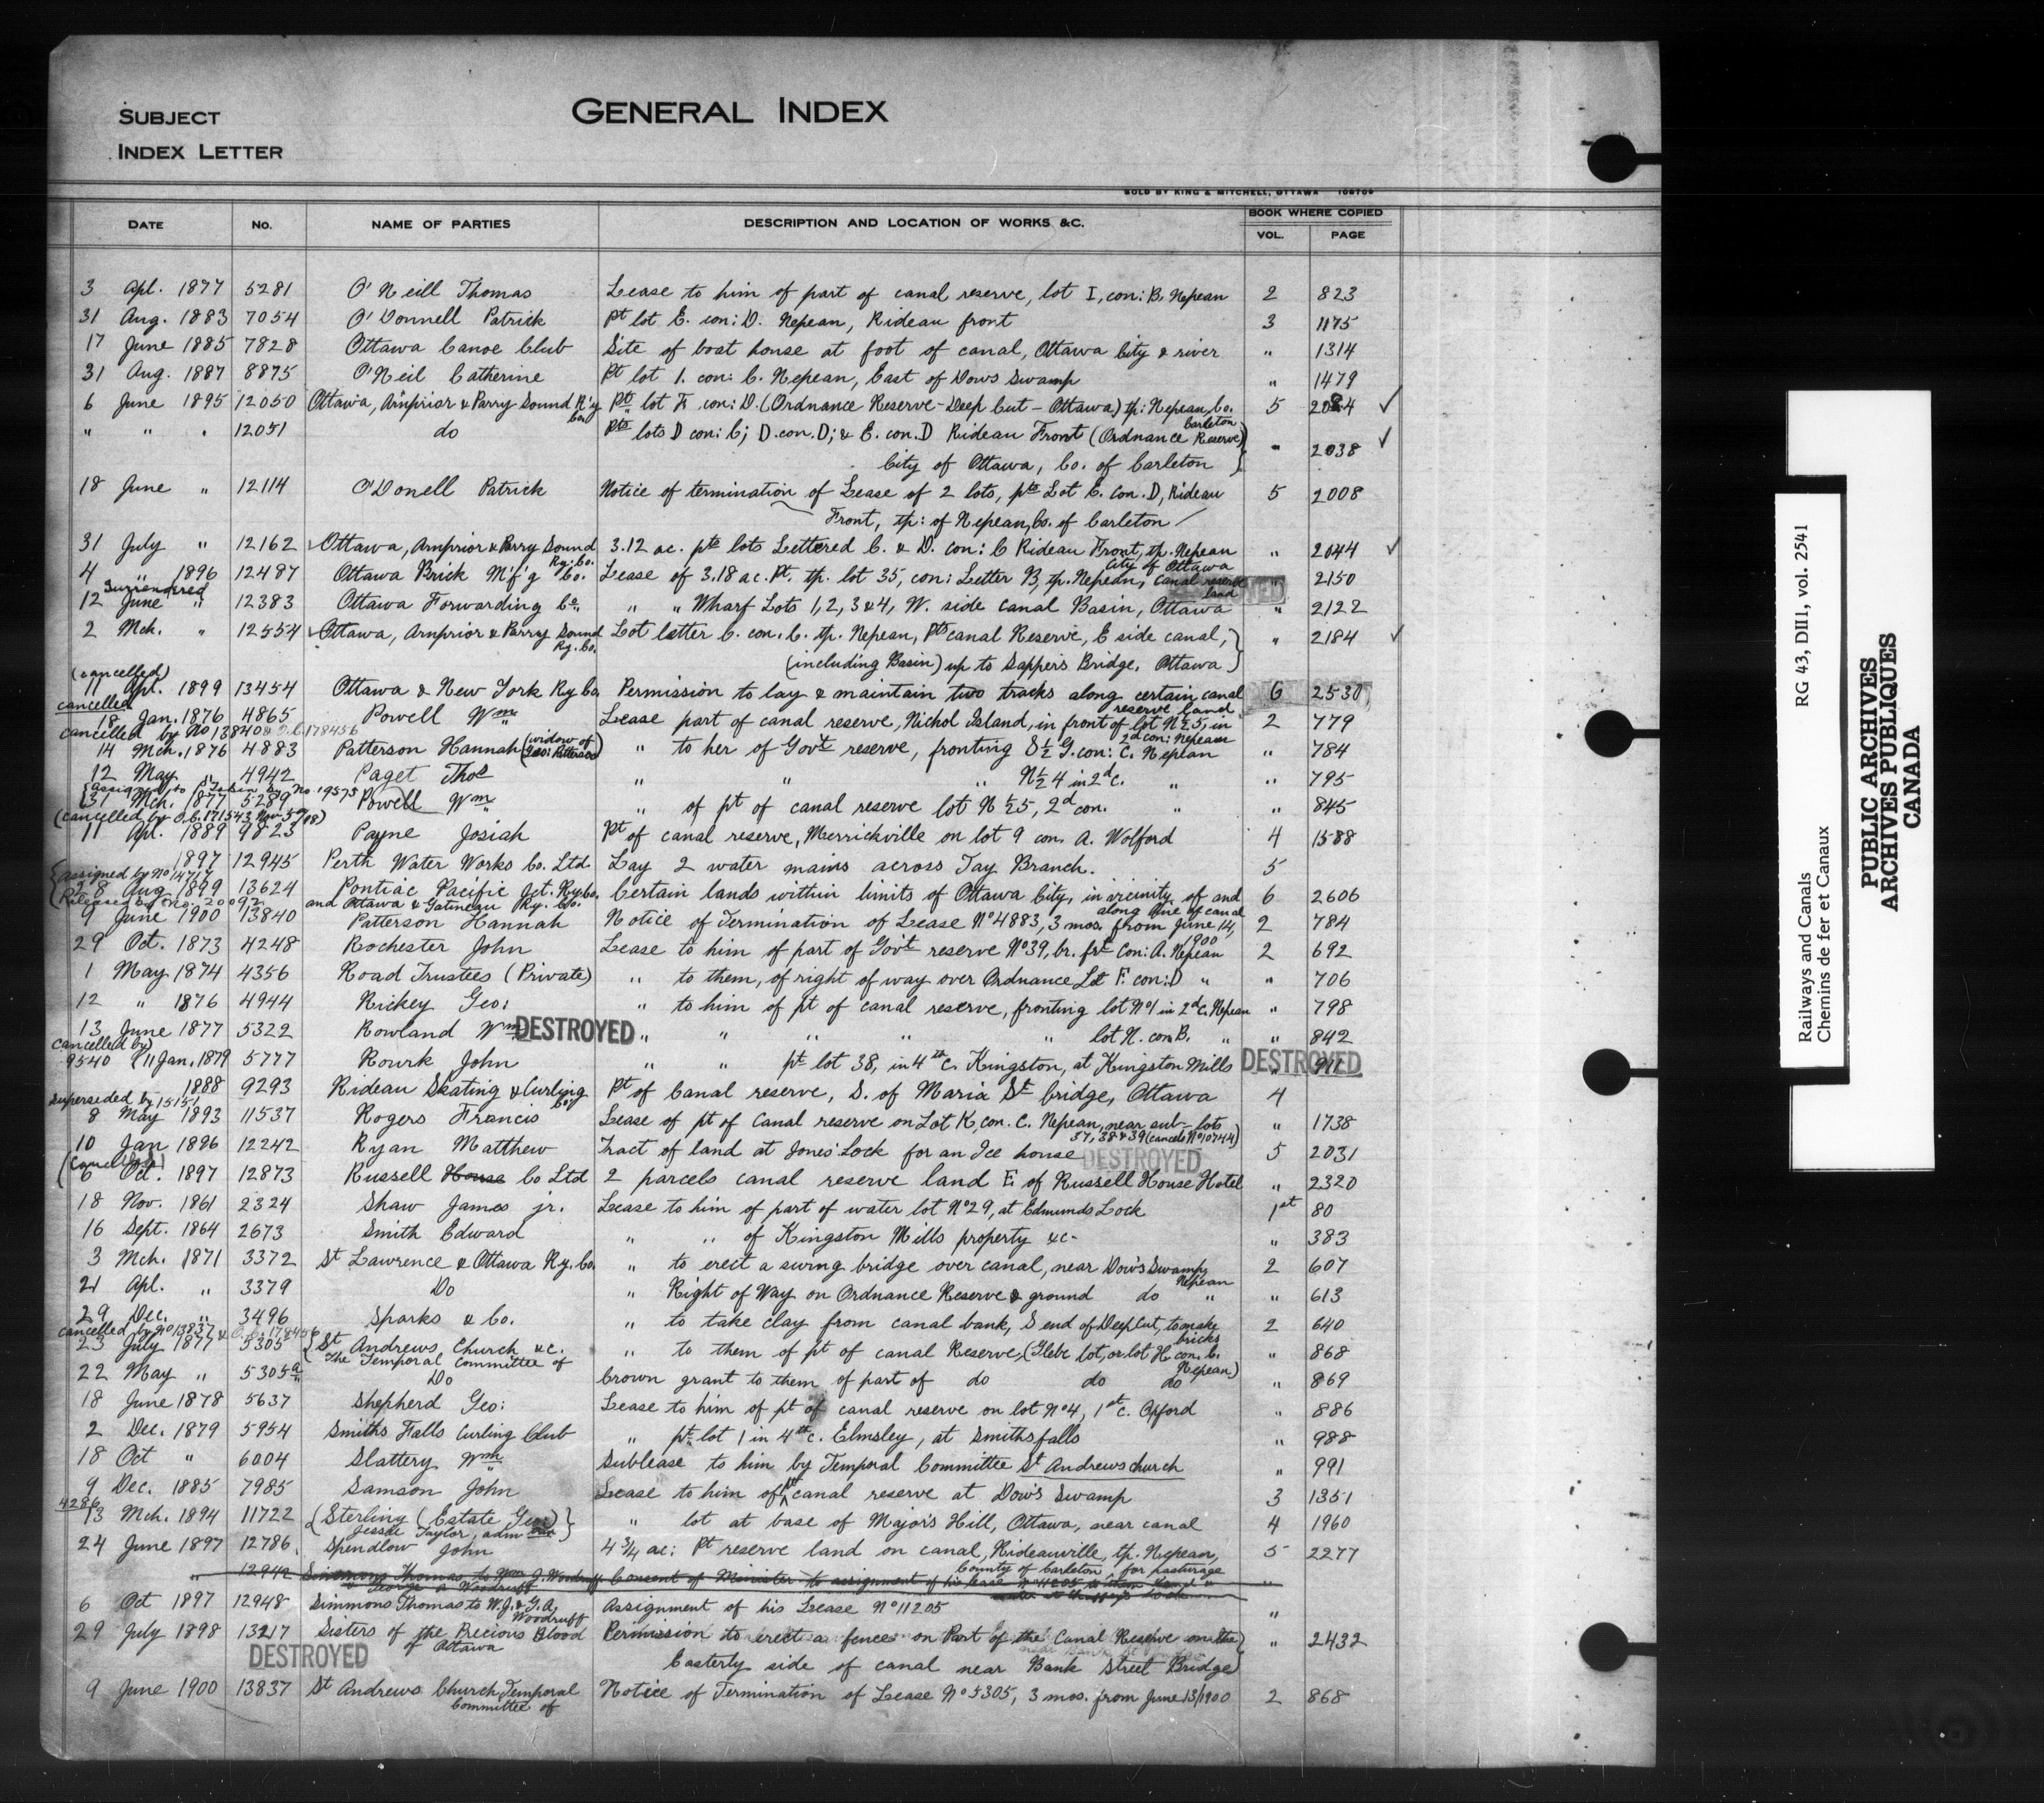 SUBJECT
INDEX LETTER
GENERAL INDEX
SOLD BY KING & MITCHELL, OTTAWA
DATE NO. NAME OF PARTIES DESCRIPTION AND LOCATION OF WORKS &C. BOOK WHERE COPIED
VOL. PAGE
3 Apl. 1877 5281 O'Neill Thomas Lease to him of part of canal reserve, lot I, con: B. Nepean 2 823
31 Aug. 1883 7054 O'Donnell Patrick Pt lot E. con: D. Nepean, Rideau front 3 1175
17 June 1885 7828 Ottawa Canoe Club Site of boat house at foot of canal, Ottawa City & river " 1314
31 Aug. 1887 8875 O'Neil Catherine Pt lot 1. con: C. Nepean, East of Dows Swamp " 1479
6 June 1895 12050 Ottawa, Arnprior & Parry Sound R'y Co. Pts lot F. con: D. (Ordnance Reserve - Deep Cut - Ottawa) tp: Nepean, Co. Carleton 5 2024 ✓
" " " 12051 do Pts lots D con: C; D. con. D; & E. con. D Rideau Front (Ordnance Reserve)
City of Ottawa, Co. of Carleton " 2038 ✓
18 June " 12114 O'Donell Patrick Notice of termination of Lease of 2 lots, pts Lot E. con. D, Rideau 5 2008
Front, tp: of Nepean, Co. of Carleton
31 July " 12162 Ottawa, Arnprior & Parry Sound Ry. Co. 3.12 ac. pts lots Lettered C. & D. con: C Rideau Front, tp. Nepean " 2044 ✓
City of Ottawa
4 " 1896 12487 Ottawa Brick M'f'g Co. Lease of 3.18 ac. Pt. tp. lot 35, con: Letter B, tp. Nepean, canal reserve land " 2150
Surrendered
12 June " 12383 Ottawa Forwarding Co. " " Wharf Lots 1, 2, 3 & 4, W. side canal Basin, Ottawa " 2122
2 Mch. " 12554 Ottawa, Arnprior & Parry Sound Ry. Co. Lot letter C. con. C. tp. Nepean, Pts canal Reserve, E side canal, " 2184 ✓
(including Basin) up to Sapper's Bridge, Ottawa
(cancelled)
11 Apl. 1899 13454 Ottawa & New York Ry Co Permission to lay & maintain two tracks along certain canal reserve land 6 2530
cancelled
18 Jan. 1876 4865 Powell Wm Lease part of canal reserve, Nichol Island, in front of lot N½ 5, in 2d con: Nepean 2 779
cancelled by No 13840 & O.C. 178456
14 Mch. 1876 4883 Patterson Hannah (widow of Geo: Patterson) " to her of Gov't reserve, fronting S½ G. con: C. Nepean " 784
12 May " 4942 Paget Thos " " " N½ 4 in 2d c. " " 795
31 Mch. 1877 5289 Powell Wm " of pt of canal reserve lot N½ 5, 2d con. " " 845
11 Apl. 1889 9823 Payne Josiah Pt of canal reserve, Merrickville on lot 9 con. A. Wolford 4 1588
1897 12945 Perth Water Works Co. Ltd Lay 2 water mains across Tay Branch. 5
assigned by No 14717
28 Aug 1899 13624 Pontiac Pacific Jct. Ry Co. Certain lands within limits of Ottawa City, in vicinity of and along line of canal 6 2606
Released by No. 20092 and Ottawa & Gatineau Ry. Co.
9 June 1900 13840 Patterson Hannah Notice of Termination of Lease No 4883, 3 mos. from June 14, 1900 2 784
29 Oct. 1873 4248 Rochester John Lease to him of part of Gov't reserve No 39, br. frt Con: A. Nepean 2 692
1 May 1874 4356 Road Trustees (Private) " to them, of right of way over Ordnance Lot F. con: D " " 706
12 " 1876 4944 Rickey Geo: " to him of pt of canal reserve, fronting lot No 1 in 2d c. Nepean " 798
13 June 1877 5322 Rowland Wm DESTROYED " " " " " lot N. con B. " " 842
cancelled by
9540 11 Jan. 1879 5777 Rourk John " " pt lot 38, in 4th c. Kingston, at Kingston Mills DESTROYED 911
1888 9293 Rideau Skating & Curling Co. Pt of Canal reserve, S. of Maria St bridge, Ottawa 4
superseded by 15151
8 May 1893 11537 Rogers Francis Lease of pt of Canal reserve on Lot K, con. C. Nepean, near sub-lots 37, 38 & 39 (cancels No 10744) " 1738
10 Jan 1896 12242 Ryan Matthew Tract of land at Jones' Lock for an Ice house DESTROYED 5 2031
(Cancelled)
6 Oct. 1897 12873 Russell House Co Ltd 2 parcels canal reserve land E. of Russell House Hotel " 2320
18 Nov. 1861 2324 Shaw James jr. Lease to him of part of water lot No 29, at Edmunds Lock 1st 80
16 Sept. 1864 2673 Smith Edward " " of Kingston Mills property &c- " 383
3 Mch. 1871 3372 St Lawrence & Ottawa Ry. Co. " to erect a swing bridge over canal, near Dow's Swamp, Nepean 2 607
21 Apl. " 3379 Do " Right of Way on Ordnance Reserve & ground do " " 613
29 Dec. " 3496 Sparks & Co. " to take clay from canal bank, S end of Deep Cut, to make bricks 2 640
cancelled by No 13837 & O.C. 178456
23 July 1877 5305 St Andrews Church &c. The Temporal Committee of " to them of pt of canal Reserve, (Glebe lot, or lot H con. C. Nepean) " 868
22 May " 5305a Do Crown grant to them of part of do do do " 869
18 June 1878 5637 Shepherd Geo: Lease to him of pt of canal reserve on lot No 4, 1st c. Oxford " 886
2 Dec. 1879 5954 Smiths Falls Curling Club " pt lot 1 in 4th c. Elmsley, at Smithsfalls " 988
18 Oct " 6004 Slattery Wm Sublease to him by Temporal Committee St Andrews church " 991
9 Dec. 1885 7985 Samson John Lease to him of pt canal reserve at Dow's Swamp 3 1351
4286
13 Mch. 1894 11722 Sterling (Estate Geo:) Jessie Taylor, adm " lot at base of Major's Hill, Ottawa, near canal 4 1960
24 June 1897 12786 Spendlow John 4¾ ac: Pt reserve land on canal, Rideauville, tp. Nepean, County of Carleton, for pasturage 5 2277
" 12942 Simmons Thomas, to Wm J. Woodruff & George A Woodruff Consent of Minister to assignment of his lease No 11205 to them
6 Oct 1897 12948 Simmons Thomas to W. J. & G. A. Woodruff Assignment of his Lease No 11205 "
29 July 1898 13217 Sisters of the Precious Blood of Ottawa Permission to erect a fence on Part of the Canal Reserve on the " 2432
DESTROYED Easterly side of canal near Bank Street Bridge
9 June 1900 13837 St Andrews Church, Temporal Committee of Notice of Termination of Lease No 5305, 3 mos. from June 13/1900 2 868
Railways and Canals RG 43, DIII, vol. 2541
Chemins de fer et Canaux
PUBLIC ARCHIVES
ARCHIVES PUBLIQUES
CANADA